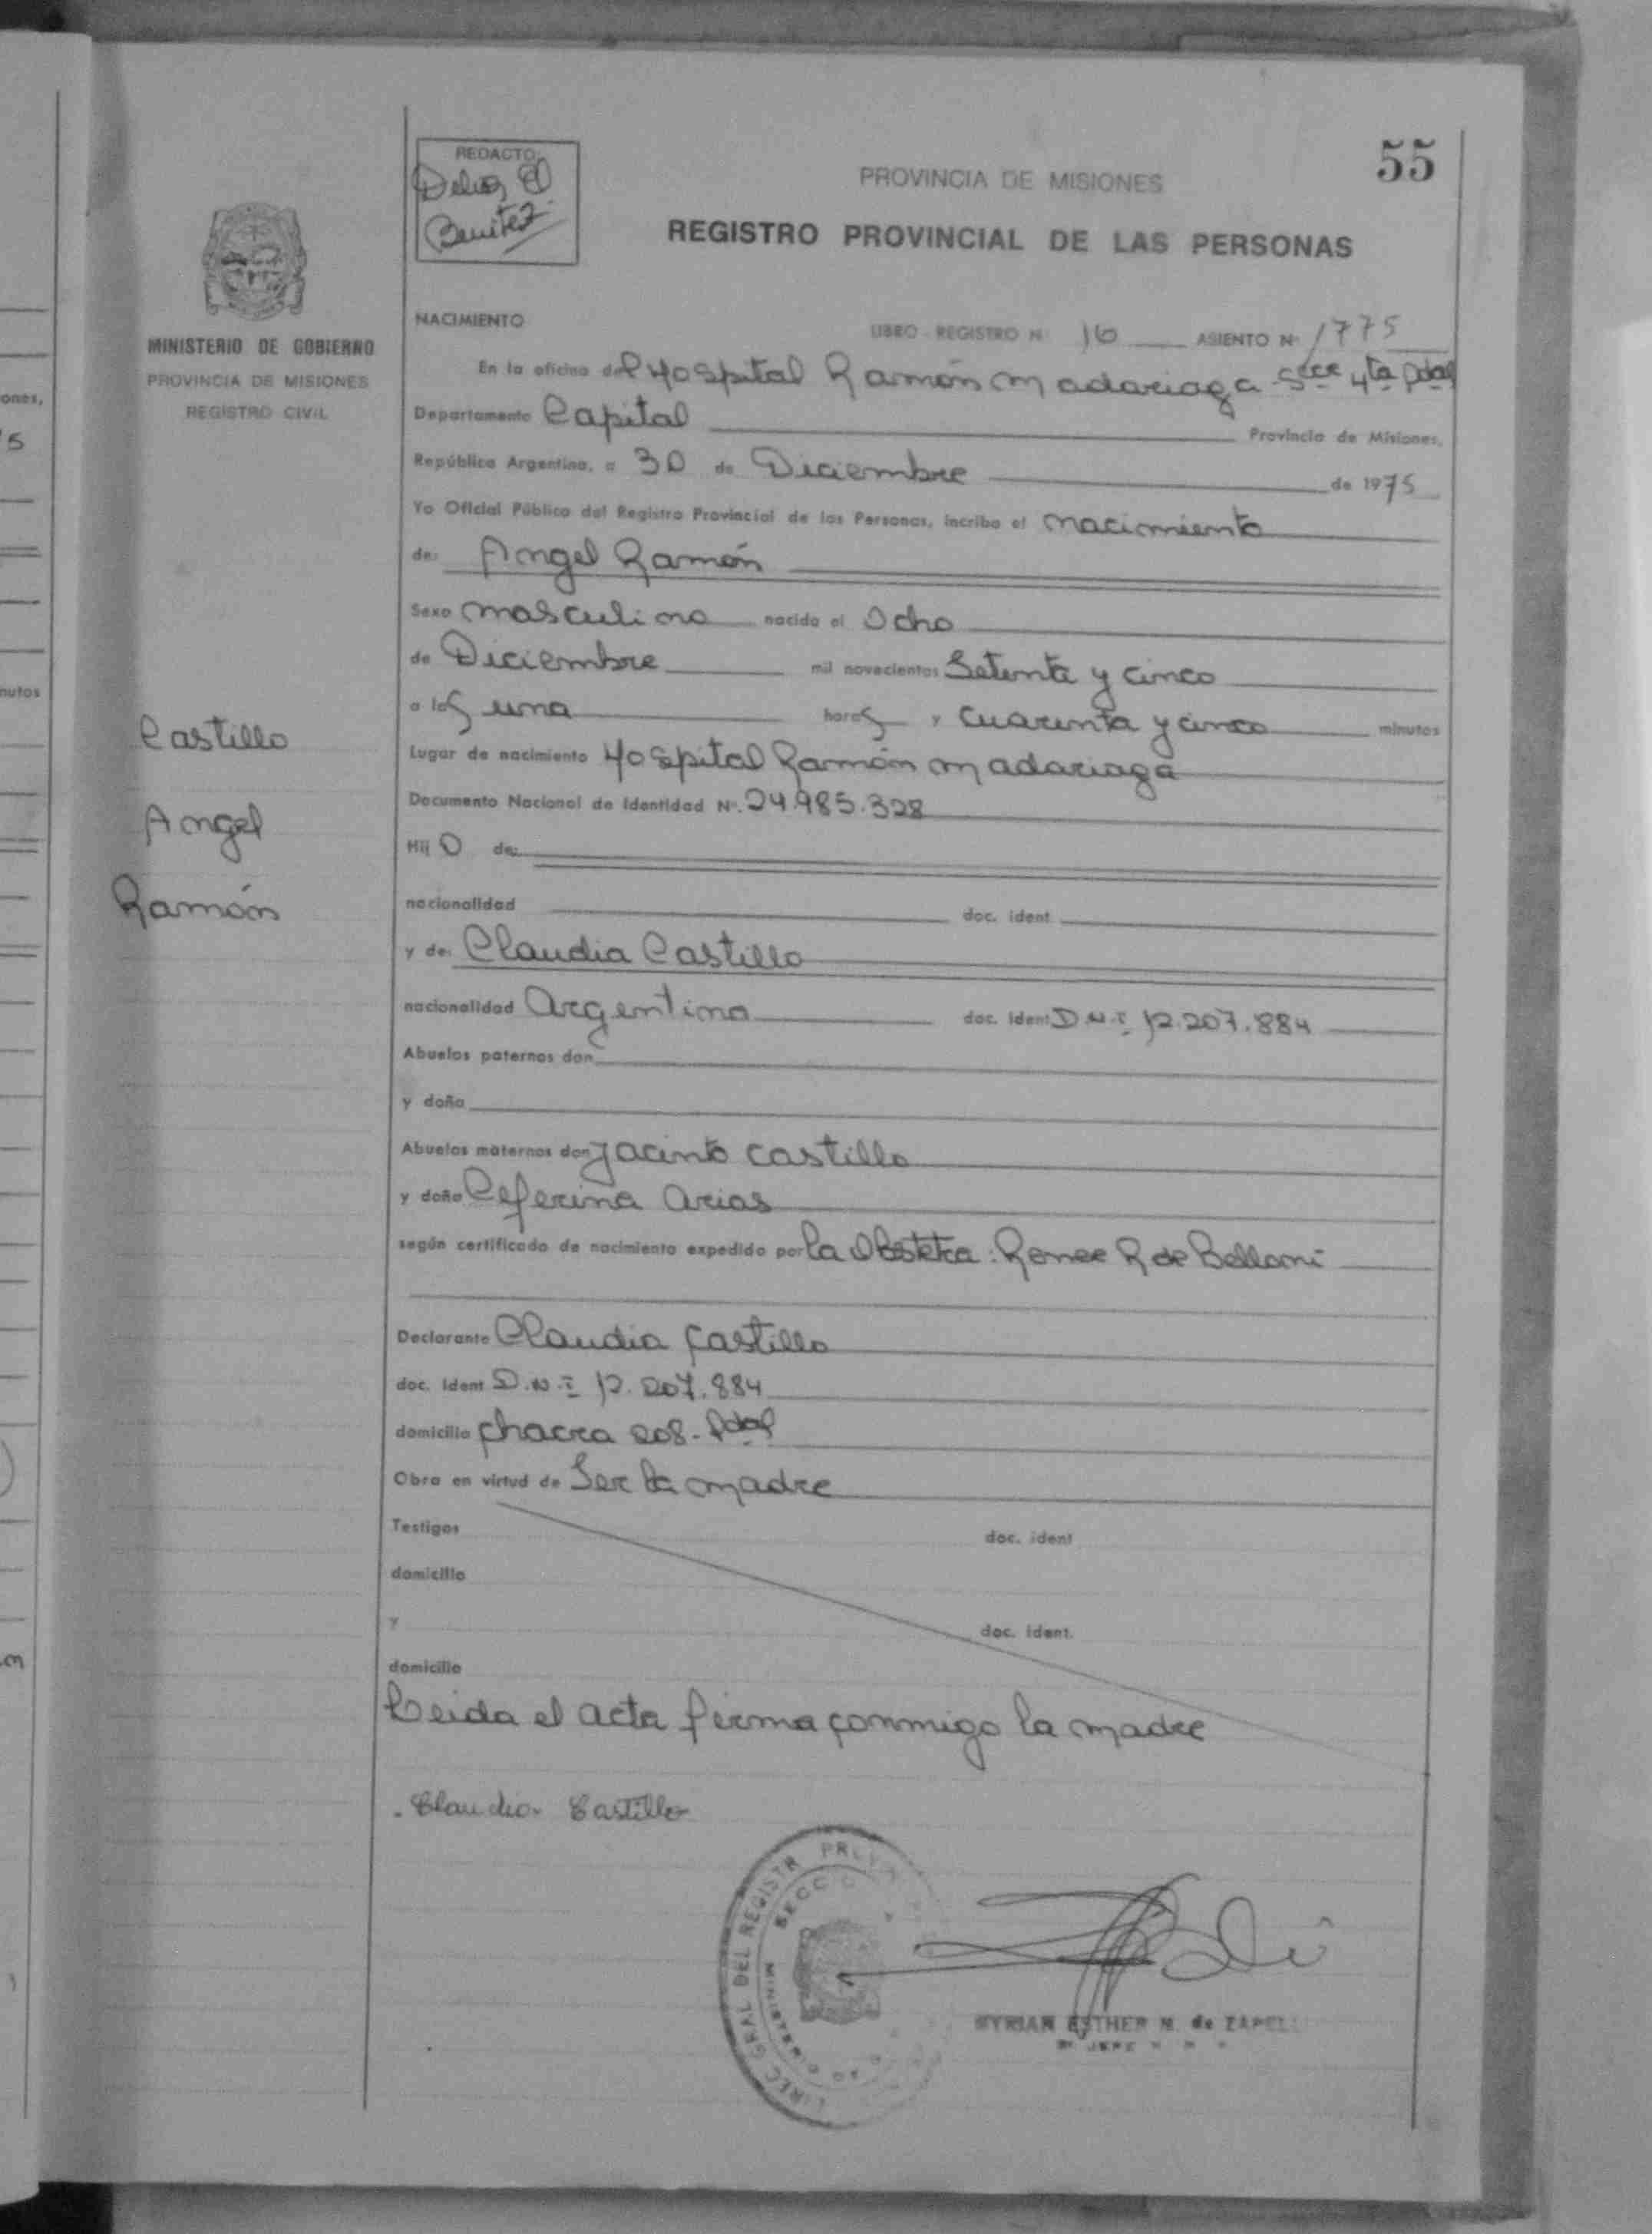 55
REDACTO
Benitez
PROVINCIA DE MISIONES
REGISTRO PROVINCIAL DE LAS PERSONAS
MINISTERIO DE GOBIERNO
PROVINCIA DE MISIONES
REGISTRO CIVIL
NACIMIENTO
LIBRO - REGISTRO Nº 16 ASIENTO Nº 1775
En la oficina del Hospital Ramón Madariaga Secc 4ta Pdas
Departamento Capital Provincia de Misiones,
República Argentina, a 30 de Diciembre de 1975
Yo Oficial Público del Registro Provincial de las Personas, incribo el nacimiento
de: Angel Ramón
Sexo masculino nacido el Ocho
de Diciembre mil novecientos Setenta y cinco
a las una horas y cuarenta y cinco minutos
Lugar de nacimiento Hospital Ramón Madariaga
Documento Nacional de Identidad Nº. 24.985.328
Hij O de:
nacionalidad doc. ident
y de: Claudia Castillo
nacionalidad Argentina doc. ident D.N.I 12.207.884
Abuelos paternos don
y doña
Abuelos maternos don Jacinto Castillo
y doña Ceferina Arias
según certificado de nacimiento expedido por la Obstetra: Renee R de Belloni
Declarante Claudia Castillo
doc. ident D.N.I 12.207.884
domicilio chacra 208 - Pdas
Obra en virtud de Ser la madre
Testigos doc. ident
domicilio
y doc. ident.
domicilio
Leida el acta firma conmigo la madre
Claudia Castillo
Castillo
Angel
Ramón
GRAL DEL REGISTR
SECC
MYRIAN ESTHER N. de ZAPELL
JEFE
ones,
5
nutos